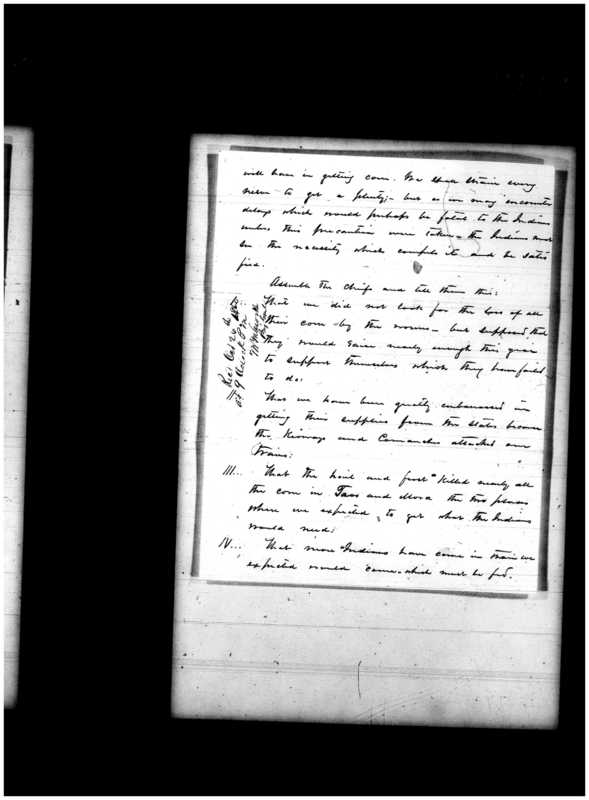 will have in getting corn. We shall strain every
nerve to get a plenty;- but as we may encounter
delays which would perhaps be fatal to the Indians
unless this precaution were taken - the Indians must
see the necessity which compels it and be satis
fied.
Assemble the chiefs and tell them this:
I... That we did not look for the loss of all
their corn - by the worms - but supposed that
they would raise nearly enough this year
to support themselves which they have failed
to do:
II... That we have been greatly embarrassed in
getting their supplies from the States because
the Kiowas and Comanches attacked our
trains:
III... That the hail and frost killed nearly all
the corn in Taos and Mora the two places
where we expected to get what the Indians
would need:
IV... That more Indians have come in than we
expected would come - which must be fed.
Rec'd Oct 26th
at 9 O'clock P.M.